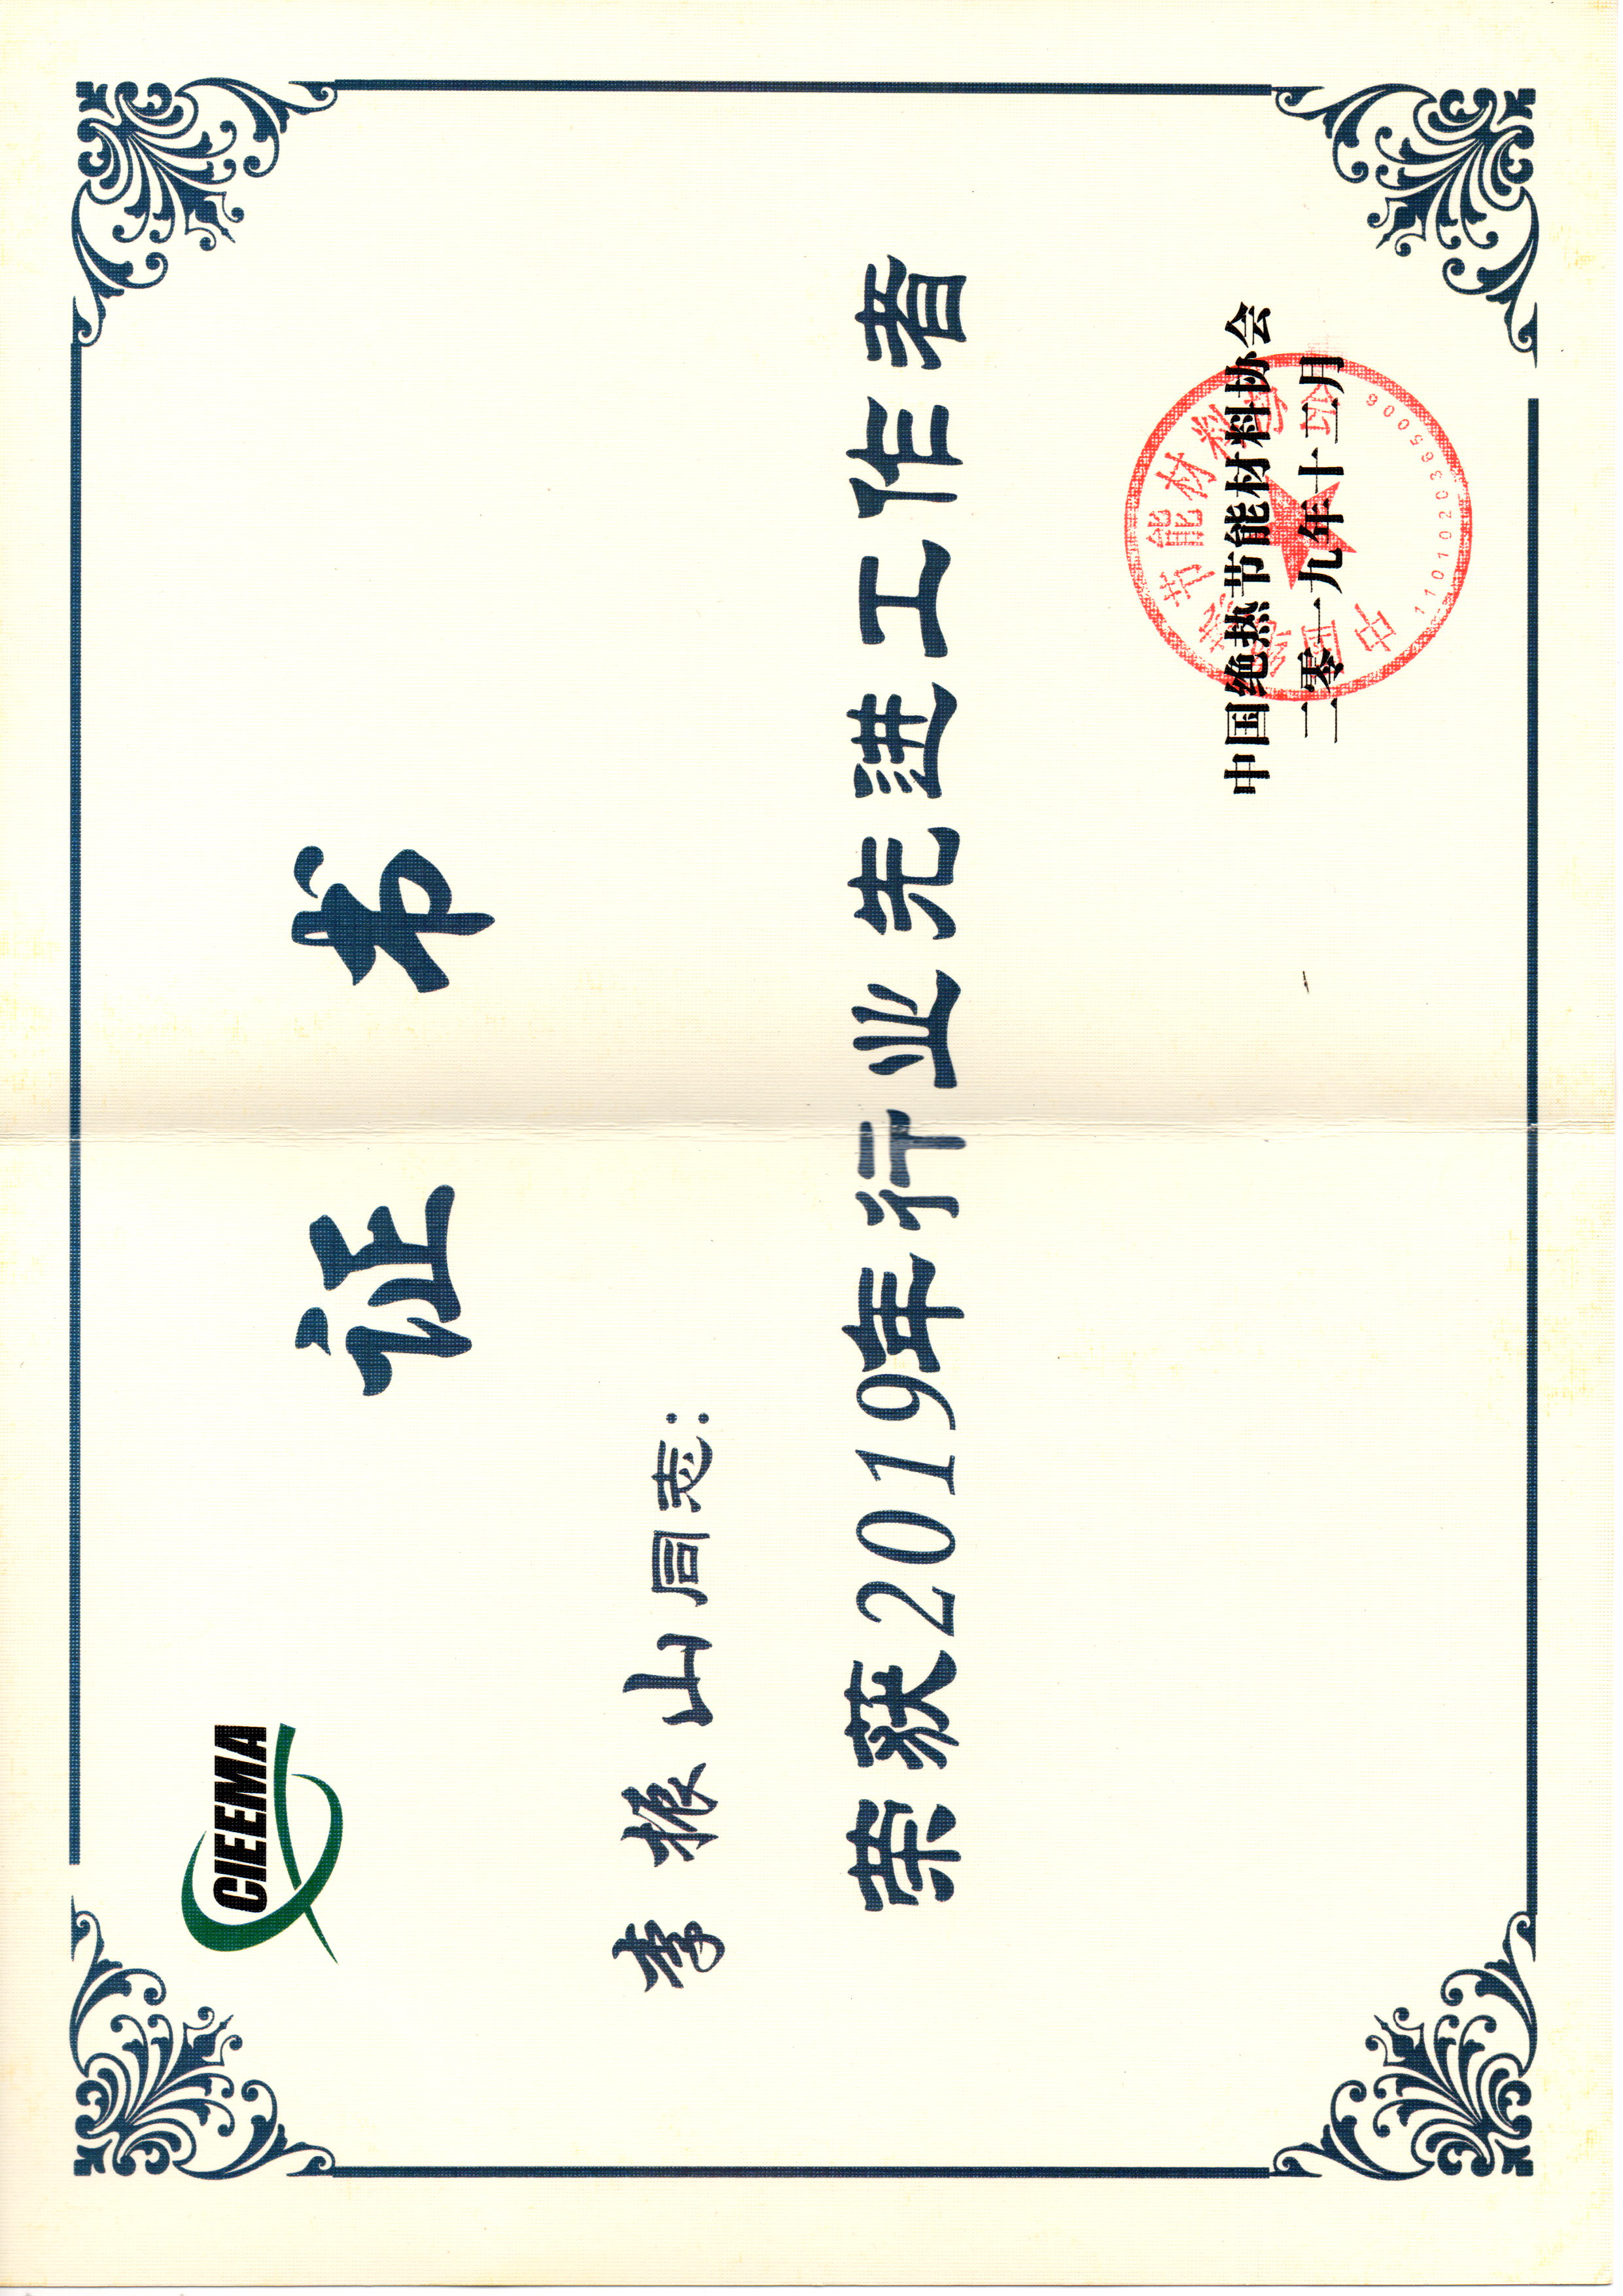 CIEEMA
证书
李振山同志：
荣获2019年行业先进工作者
中国绝热节能材料协会
二零一九年十二月
中国绝热节能材料协会
1101020365006